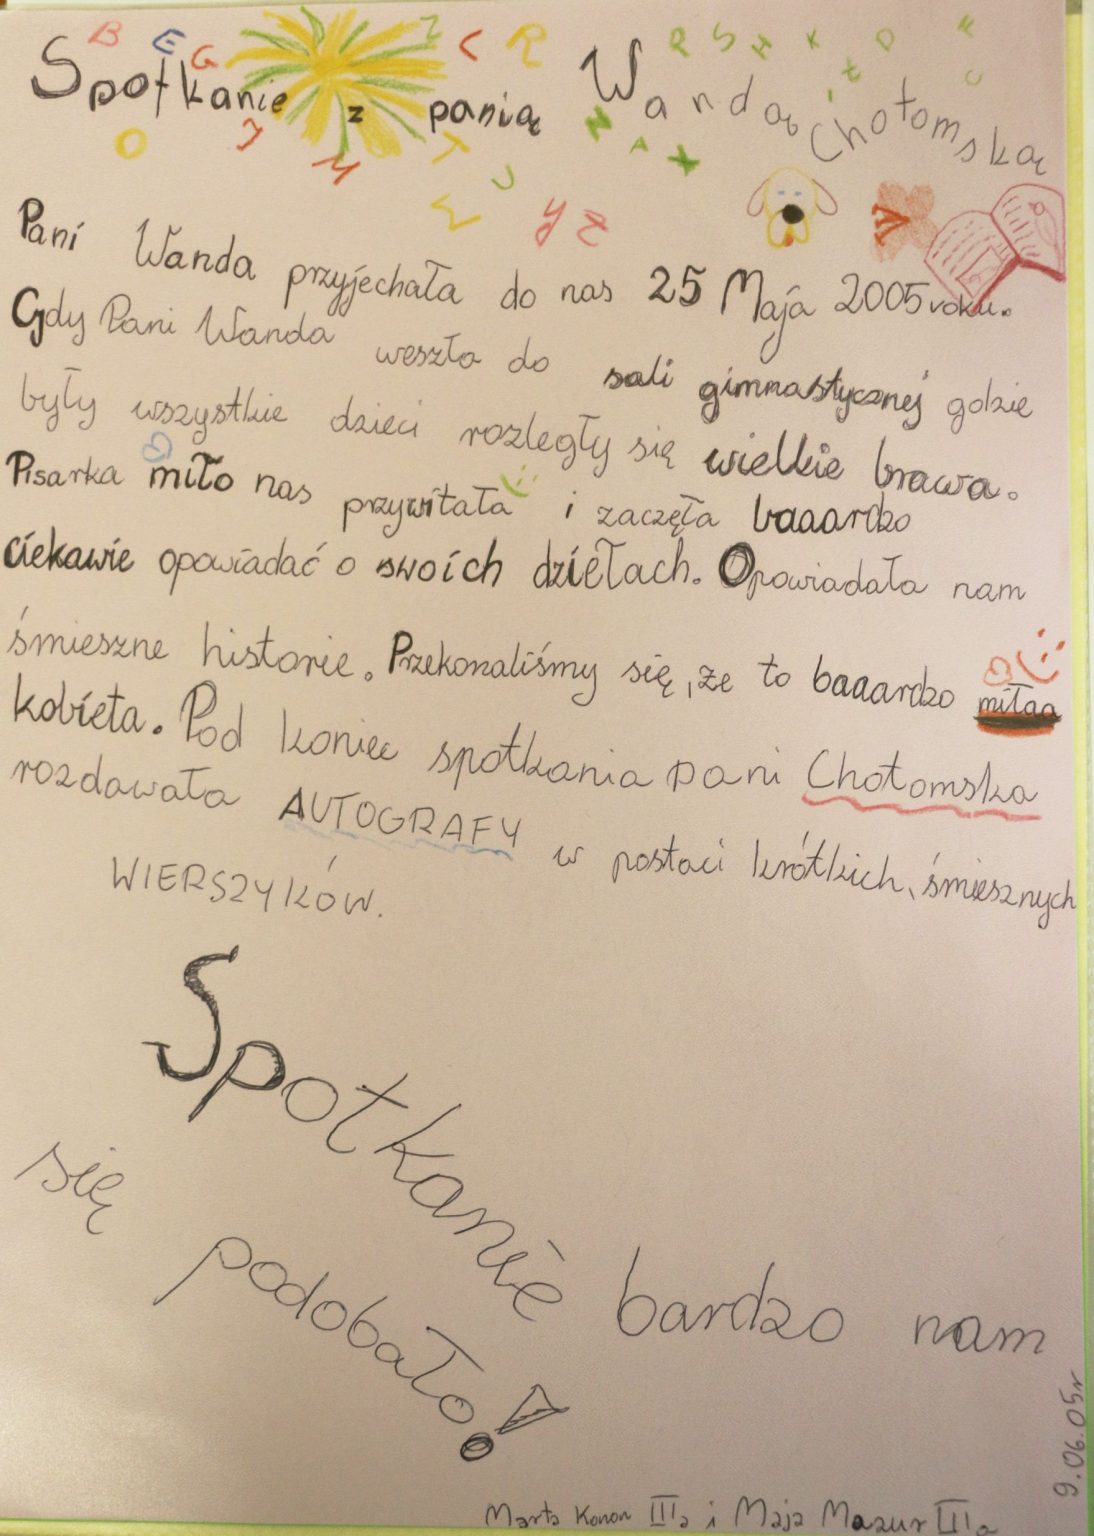 Spotkanie z panią Wandą Chotomską
B E G Z C R P S H K D F
Ł C
O J M T U N A X
W Y Z
Pani Wanda przyjechała do nas 25 Maja 2005 roku.
Gdy Pani Wanda weszła do sali gimnastycznej gdzie
były wszystkie dzieci rozległy się wielkie brawa.
Pisarka miło nas przywitała i zaczęła baaardzo
ciekawie opowiadać o swoich dziełach. Opowiadała nam
śmieszne historie. Przekonaliśmy się, że to baaardzo miłaa
kobieta. Pod koniec spotkania pani Chotomska
rozdawała AUTOGRAFY w postaci krótkich, śmiesznych
WIERSZYKÓW.
Spotkanie bardzo nam
się podobało!
9.06.05r
Marta Konon IIIa i Maja Mazur IIIa